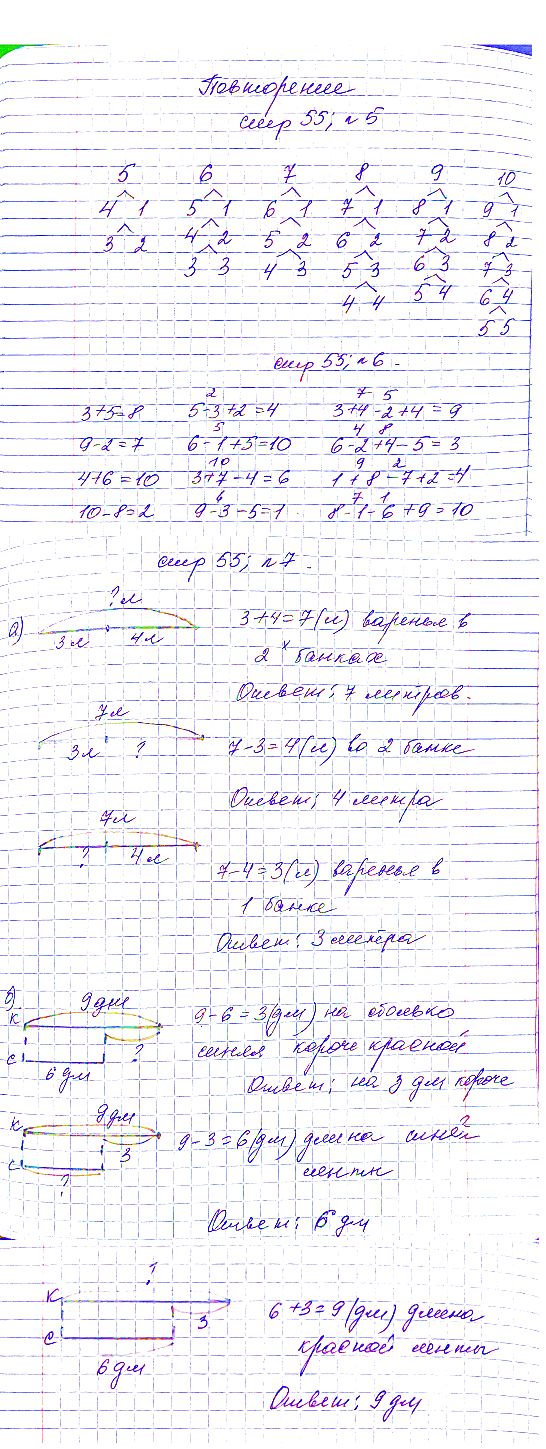 Повторение
стр 55; №5
5 6 7 8 9 10
4 1 5 1 6 1 7 1 8 1 9 1
3 2 4 2 5 2 6 2 7 2 8 2
3 3 4 3 5 3 6 3 7 3
4 4 5 4 6 4
5 5
стр 55; №6.
2 7 5
3+5=8 5-3+2=4 3+4-2+4=9
5 4 8
9-2=7 6-1+5=10 6-2+4-5=3
10 9 2
4+6=10 3+7-4=6 1+8-7+2=4
6 7 1
10-8=2 9-3-5=1 8-1-6+9=10
стр 55; №7.
а) ?л
3л 4л
3+4=7(л) варенья в
2х банках
Ответ: 7 литров.
7л
3л ?
7-3=4(л) во 2 банке
Ответ: 4 литра
7л
? 4л
7-4=3(л) варенья в
1 банке
Ответ: 3 литра
б)
К 9дм
С 6дм ?
9-6=3(дм) на сколько
синяя короче красной
Ответ: на 3 дм короче
К 9дм
С ? 3
9-3=6(дм) длина синей
ленты
Ответ: 6 дм
?
К
С 3
6дм
6+3=9(дм) длина
красной ленты
Ответ: 9 дм